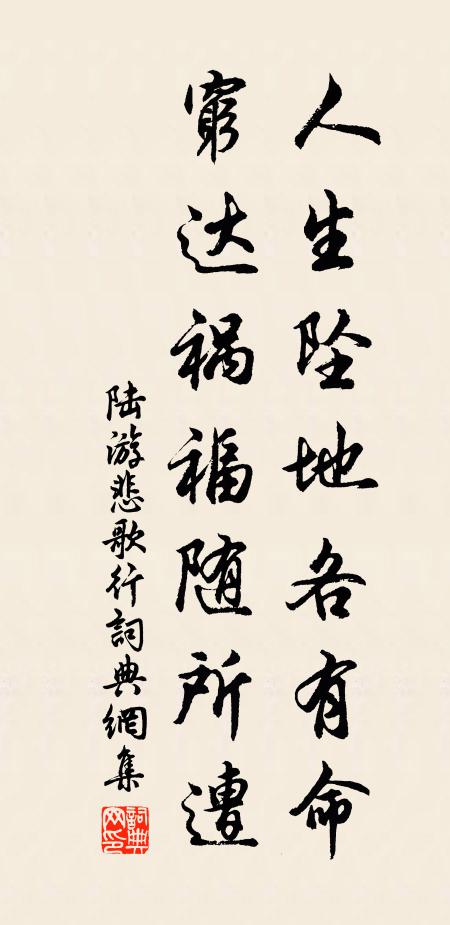 人生坠地各有命
窮达祸福随所遭
陆游悲歌行詞典網集
詞典网印